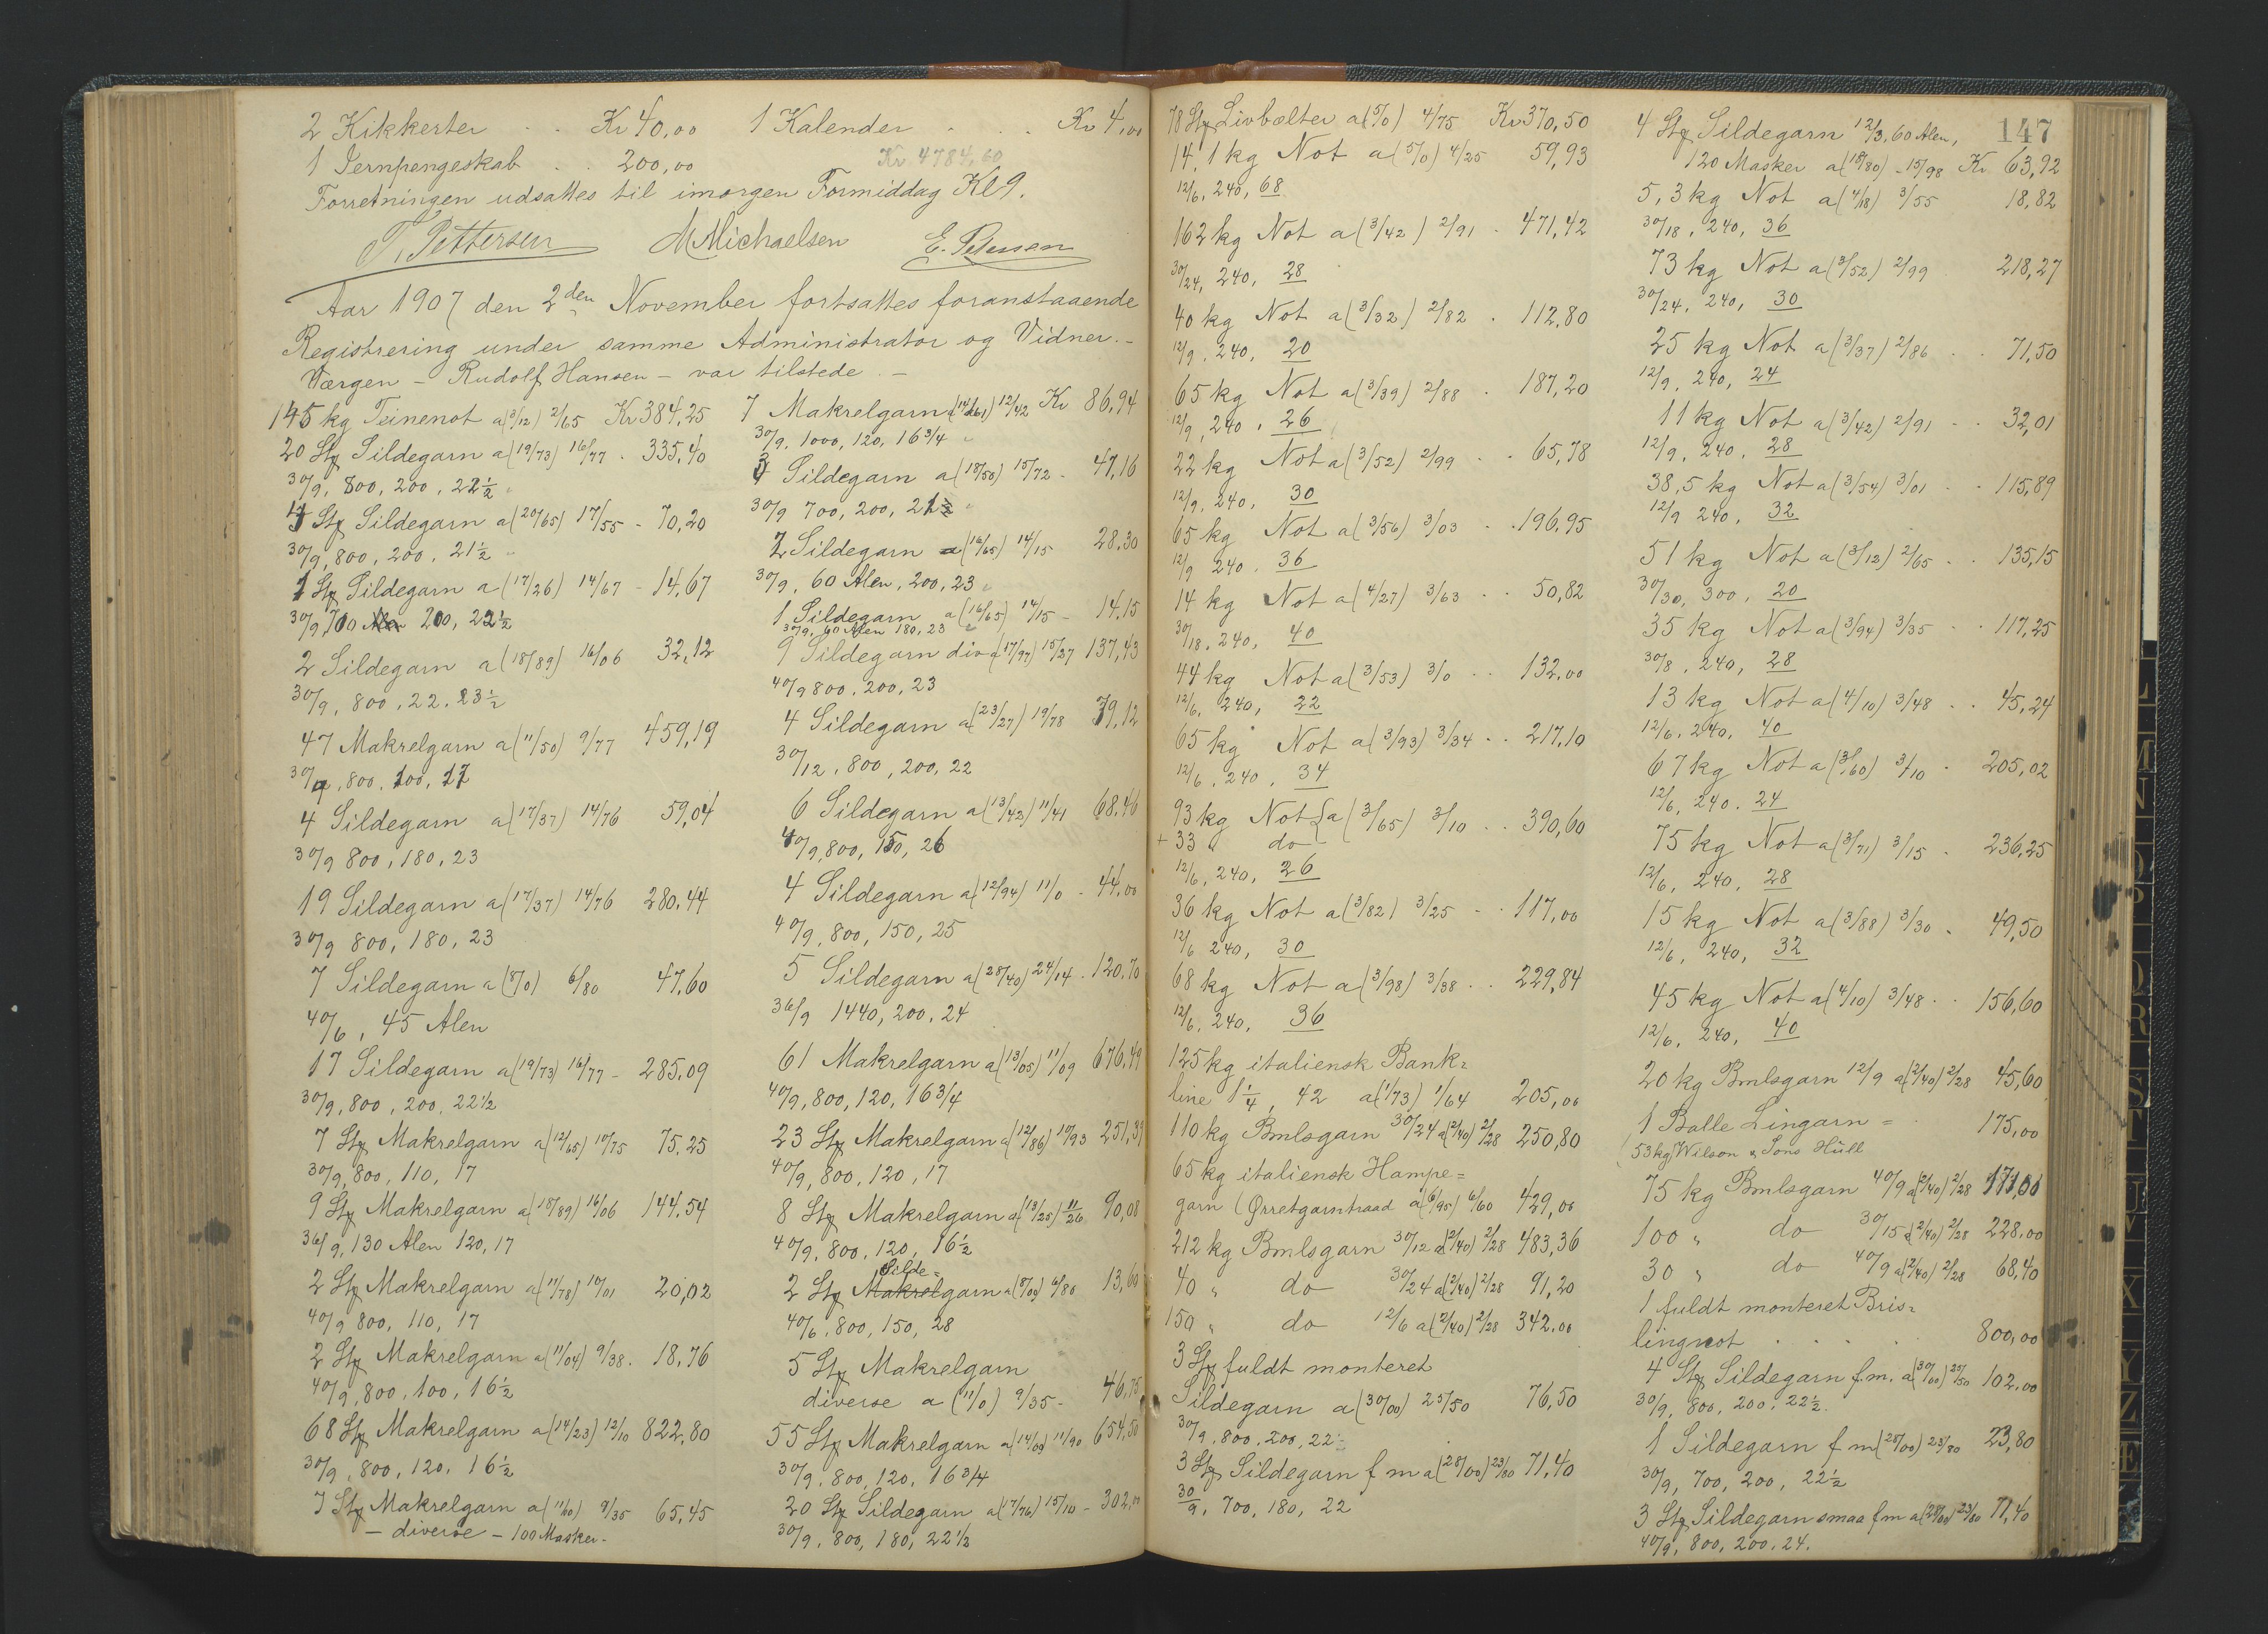 2 Kikkerter . . Kr 40,00
1 Jernpengeskab . . 200,00
1 Kalender . . . Kr 4,00
Kr. 4784,60
Forretningen udsattes til imorgen Formiddag Kl 9.
T. Pettersen M Michaelsen E. Petersen
Aar 1907 den 2den November fortsattes foranstaaende
Registrering under samme Administrator og Vidner. –
Værgen – Rudolf Hansen – var tilstede. –
145 kg Teinenot a (3/12) 2/65 Kr 384,25
20 Stk Sildegarn a (19/73) 16/77 . 335,40
30/9, 800, 200, 22 1/2
4 Stk Sildegarn a (20/65) 17/55 - 70,20
30/9, 800, 200, 21 1/2
1 Stk Sildegarn a (17/26) 14/67 - 14,67
30/9, 700 200, 22 1/2
2 Sildegarn a (18/89) 16/06 32,12
30/9, 800, 22, 23 1/2
47 Makrelgarn a (11/50) 9/77 459,19
30/9, 800, 100, 17
4 Sildegarn a (17/37) 14/76 59,04
30/9 800, 180, 23
19 Sildegarn a (17/37) 14/76 280,44
30/9 800, 180, 23
7 Sildegarn a (8/0) 6/80 47,60
40/6, 45 Alen
17 Sildegarn a (19/73) 16/77 - 285,09
30/9, 800, 200, 22 1/2
7 Stk Makrelgarn a (12/65) 10/75 75,25
30/9, 800, 110, 17
9 Stk Makrelgarn a (18/89) 16/06 144,54
36/9, 130 Alen 120, 17
2 Stk Makrelgarn a (11/78) 10/01 20,02
40/9 800, 110, 17
2 Stk Makrelgarn a (11/04) 9/38 . 18,76
40/9, 800, 100, 16 1/2
68 Stk Makrelgarn a (14/23) 12/10 822,80
30/9, 800, 120, 16 1/2
7 Stk Makrelgarn a (11/00) 9/35 65,45
– diverse – 100 Masker –
7 Makrelgarn a (14/61) 12/42 Kr 86,94
30/9, 1000, 120, 16 3/4
3 Sildegarn a (18/50) 15/72 - 47,16
30/9 700, 200, 21 1/2
2 Sildegarn a (16/65) 14/15 28,30
30/9, 60 Alen, 200, 23
1 Sildegarn a (16/65) 14/15 - 14,15
30/9, 60 Alen 180, 23
9 Sildegarn div a (17/97) 15/27 137,43
40/9 800, 200, 23
4 Sildegarn a (23/27) 19/78 79,12
30/12, 800, 200, 22
6 Sildegarn a (13/42) 11/41 68,46
40/9, 800, 150, 26
4 Sildegarn a (12/94) 11/0 - 44,00
40/9, 800, 150, 25
5 Sildegarn a (28/40) 24/14 . 120,70
36/9 1440, 200, 24
61 Makrelgarn a (13/05) 11/09 676,49
40/9, 800, 120, 16 3/4
23 Stk Makrelgarn a (12/86) 10/93 251,39
40/9, 800, 120, 17
8 Stk Makrelgarn a (13/25) 11/26 90,08
40/9, 800, 120, 16 1/2
Silde=
2 Stk Makrelgarn a (8/00) 6/80 13,60
40/6, 800, 150, 28
5 Stk Makrelgarn
diverse a (11/0) 9/35 - 46,75
55 Stk Makrelgarn a (14/00) 11/90 654,50
30/9, 800, 120, 16 3/4
20 Stk Sildegarn a (17/76) 15/10 - 302,00
30/9, 800, 180, 22 1/2
78 Stk Livbælter a (5/0) 4/75 Kr 370,50
14,1 kg Not a (5/0) 4/25 59,93
12/6, 240, 68
162 kg Not a (3/42) 2/91 - 471,42
30/24, 240, 28
40 kg Not a (3/32) 2/82 . 112,80
12/9, 240, 20
65 kg Not a (3/39) 2/88 . 187,20
12/9, 240, 26
22 kg Not a (3/52) 2/99 . . 65,78
12/9, 240, 30
65 kg Not a (3/56) 3/03 . . 196,95
12/9 240, 36
14 kg Not a (4/27) 3/63 . . 50,82
30/18, 240, 40
44 kg Not a (3/53) 3/0 . . 132,00
12/6, 240, 22
65 kg Not a (3/93) 3/34 . . 217,10
12/6, 240, 34
93 kg Not { a (3/65) 3/10 . . 390,60
+ 33 " do
12/6, 240, 26
36 kg Not a (3/82) 3/25 - . 117,00
12/6 240, 30
68 kg Not a (3/98) 3/38 . . 229,84
12/6, 240, 36
125 kg italiensk Bank=
line 1 1/4, 42 a (1/73) 1/64 205,00
110 kg Bmlsgarn 30/24 a (2/40) 2/28 250,80
65 kg italiensk Hampe=
garn (Ørretgarntraad a (6/95) 6/60 429,00
212 kg Bmlsgarn 30/12 a (2/40) 2/28 483,36
40 " do 30/24 a (2/40) 2/28 91,20
150 " do 12/6 a (2/40) 2/28 342,00
3 Stk fuldt monteret
Sildegarn a (30/00) 25/50 76,50
30/9, 800, 200, 22
3 Stk Sildegarn f m a (28/00) 23/80 71,40
30/9, 700, 180, 22
147
4 Stk Sildegarn 12/3, 60 Alen,
120 Masker a (18/80) 15/98 Kr 63,92
5,3 kg Not a (4/18) 3/55 18,82
30/18, 240, 36
73 kg Not a (3/52) 2/99 218,27
30/24, 240, 30
25 kg Not a (3/37) 2/86 . . 71,50
12/9, 240, 24
11 kg Not a (3/42) 2/91 . . 32,01
12/9, 240, 28
38,5 kg Not a (3/54) 3/01 . . 115,89
12/9 240, 32
51 kg Not a (3/12) 2/65 . . 135,15
30/30, 300, 20
35 kg Not a (3/94) 3/35 . . 117,25
30/8, 240, 28
13 kg Not a (4/10) 3/48 . . 45,24
12/6, 240, 40
67 kg Not a (3/60) 3/10 . 205,02
12/6, 240, 24
75 kg Not a (3/71) 3/15 . 236,25
12/6, 240, 28
15 kg Not a (3/88) 3/30 . 49,50
12/6, 240, 32
45 kg Not a (4/10) 3/48 . . 156,60
12/6, 240, 40
20 kg Bmlsgarn 12/9 a (2/40) 2/28 45,60
1 Balle Lingarn = 175,00
(53 kg) Wilson & Sons Hüll
75 kg Bmlsgarn 40/9 a (2/40) 2/28 171,00
100 " do 30/15 a (2/40) 2/28 228,00
30 " do 40/9 a (2/40) 2/28 68,40
1 fuldt monteret Bris=
lingnot . . . . 800,00
4 Stk Sildegarn f. m. a (30/00) 25/50 102,00
30/9, 800, 200, 22 1/2.
1 Sildegarn f m (28/00) 23/80 23,80
30/9, 700, 200, 22 1/2
3 Stk Sildegarn smaa f m a (28/00) 23/80 71,40
40/9, 800, 200, 24.